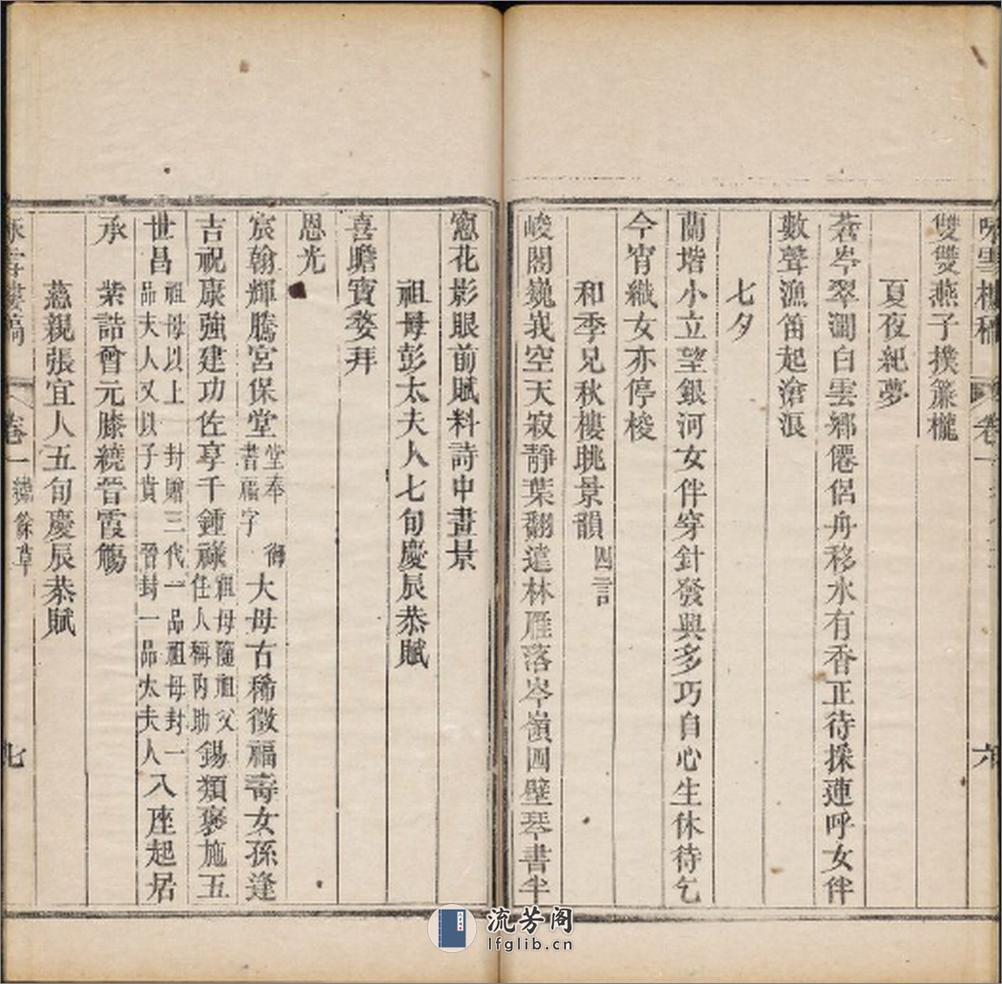 詠雪樓稿 卷一 六
雙雙燕子撲簾櫳
夏夜紀夢
蒼岑翠澗白雲鄉僊侶舟移水有香正待採蓮呼女伴
數聲漁笛起滄浪
七夕
蘭堦小立望銀河女伴穿針發興多巧自心生休待乞
今宵織女亦停梭
和季兄秋樓眺景韻四言
峻閣巍峩空天寂靜葉翻遠林雁落岑嶺四壁琴書半
窻花影眼前賦料詩中畫景
祖母彭太夫人七旬慶辰恭賦
喜瞻寶婺拜
恩光
宸翰輝騰宮保堂堂奉 御書福字大母古稀徵福壽女孫逢
吉祝康強建功佐享千鍾祿祖母隨祖父任人稱內助錫類褒施五
世昌祖母以上 封贈三代一品祖母封一品夫人又以子貴 晉封一品太夫人八座起居
承 紫誥曾元膝繞晉霞觴
慈親張宜人五旬慶辰恭賦
詠雪樓稿 卷一 繡餘草 七
流芳阁
lfglib.cn